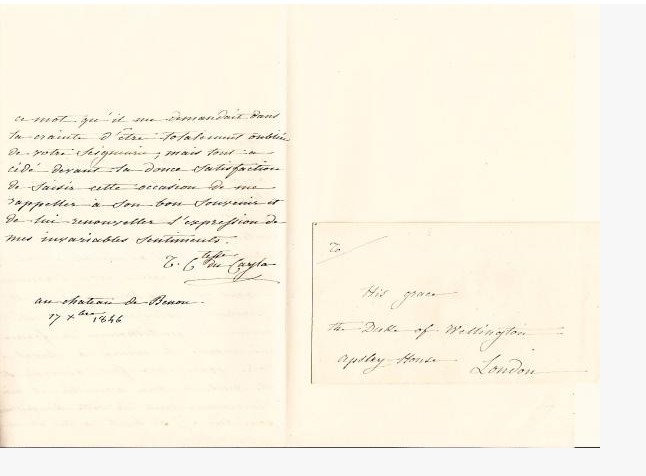 ce mot qu'il me demandait dans
la crainte d'être totalement oubliée
de votre Seigneurie, mais tout a
cédé devant la douce satisfaction
de saisir cette occasion de me
rappeller à son bon souvenir et
de lui renouveller l'expression de
mes invariables sentiments.
Ctesse du Cayla
au chateau de Benon
17 Xbre 1846
To
His grace
the Duke of Wellington
apsley House
London